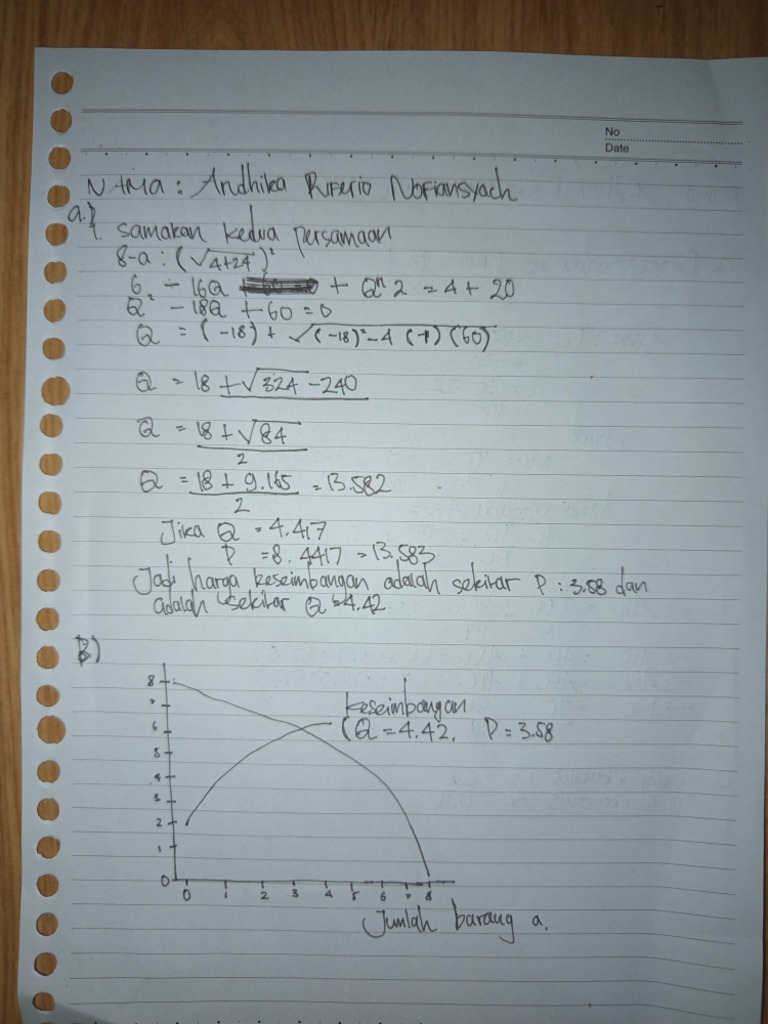 No
Date
NAMA : Andhika Riferio Nofiansyach
a.)
1. samakan kedua persamaan
8-a : (√4+24)²
6 - 16Q + Q^2 = 4 + 20
Q² - 18Q + 60 = 0
Q = (-18) + √(-18)²-4 (-1) (60)
Q = 18 + √324 - 240
Q = 18 + √84
2
Q = 18 + 9.165 = 13.582
2
Jika Q = 4.417
P = 8. 4417 = 13.583
Jadi harga keseimbangan adalah sekitar P : 3.58 dan
adalah sekitar Q = 4.42
B.)
8
7
6
5
4
3
2
1
0
keseimbangan
(Q = 4.42, P = 3.58
0 1 2 3 4 5 6 7 8
Jumlah barang a.